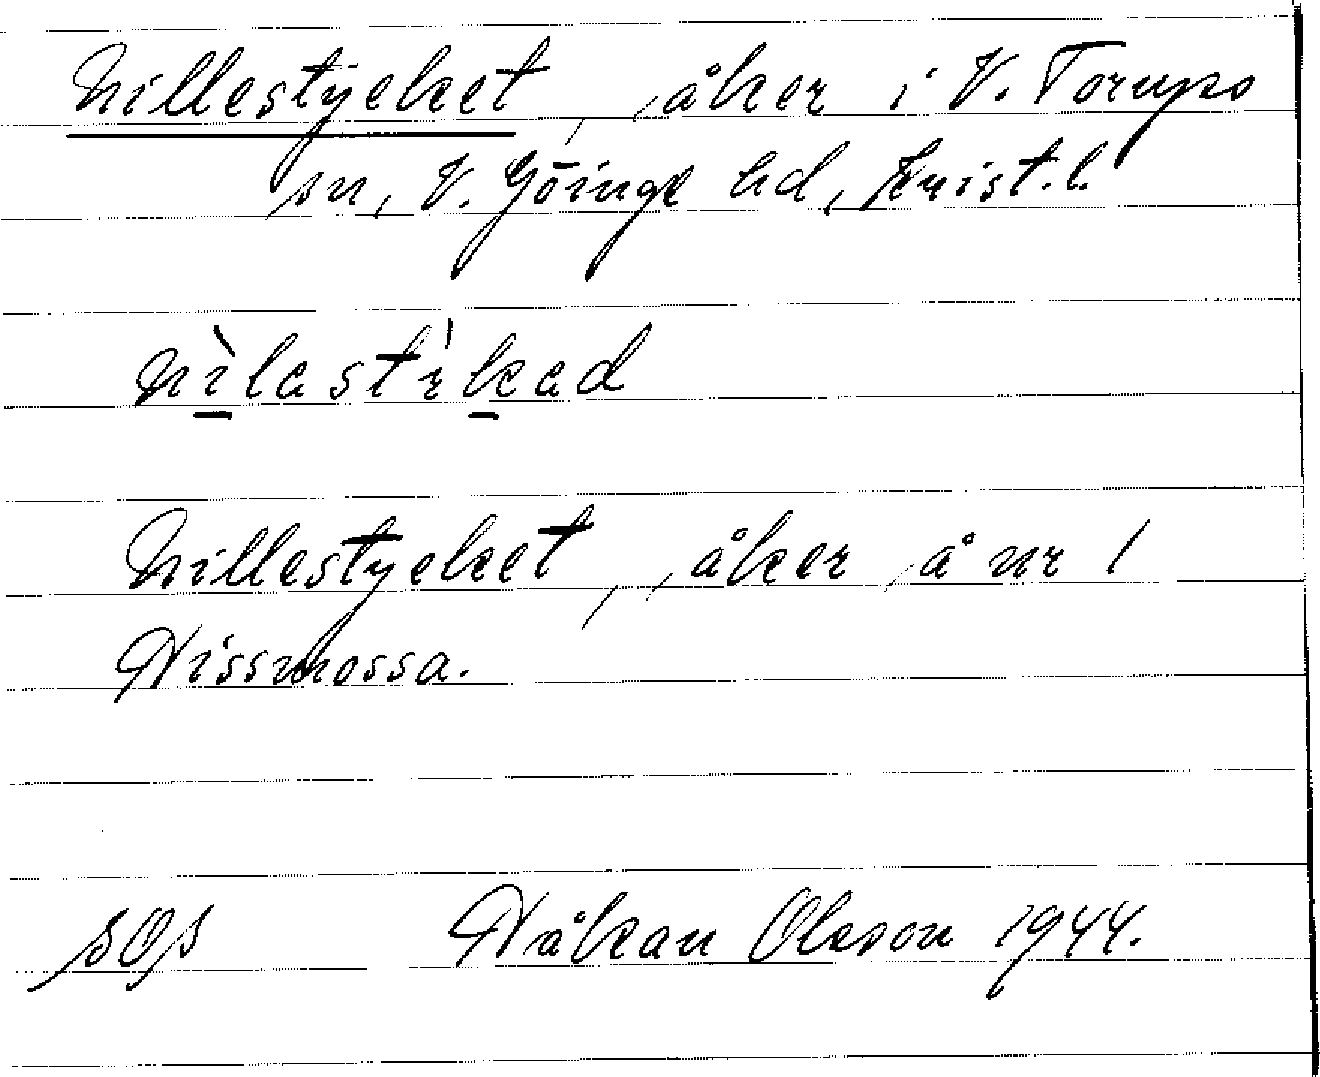 Nillestycket, åker i V. Torups
sn, V. Göinge hd, Krist. l.
nìlastìkad
Nillestycket, åker å nr 1
Hissmossa.
Håkan Olsson 1944.